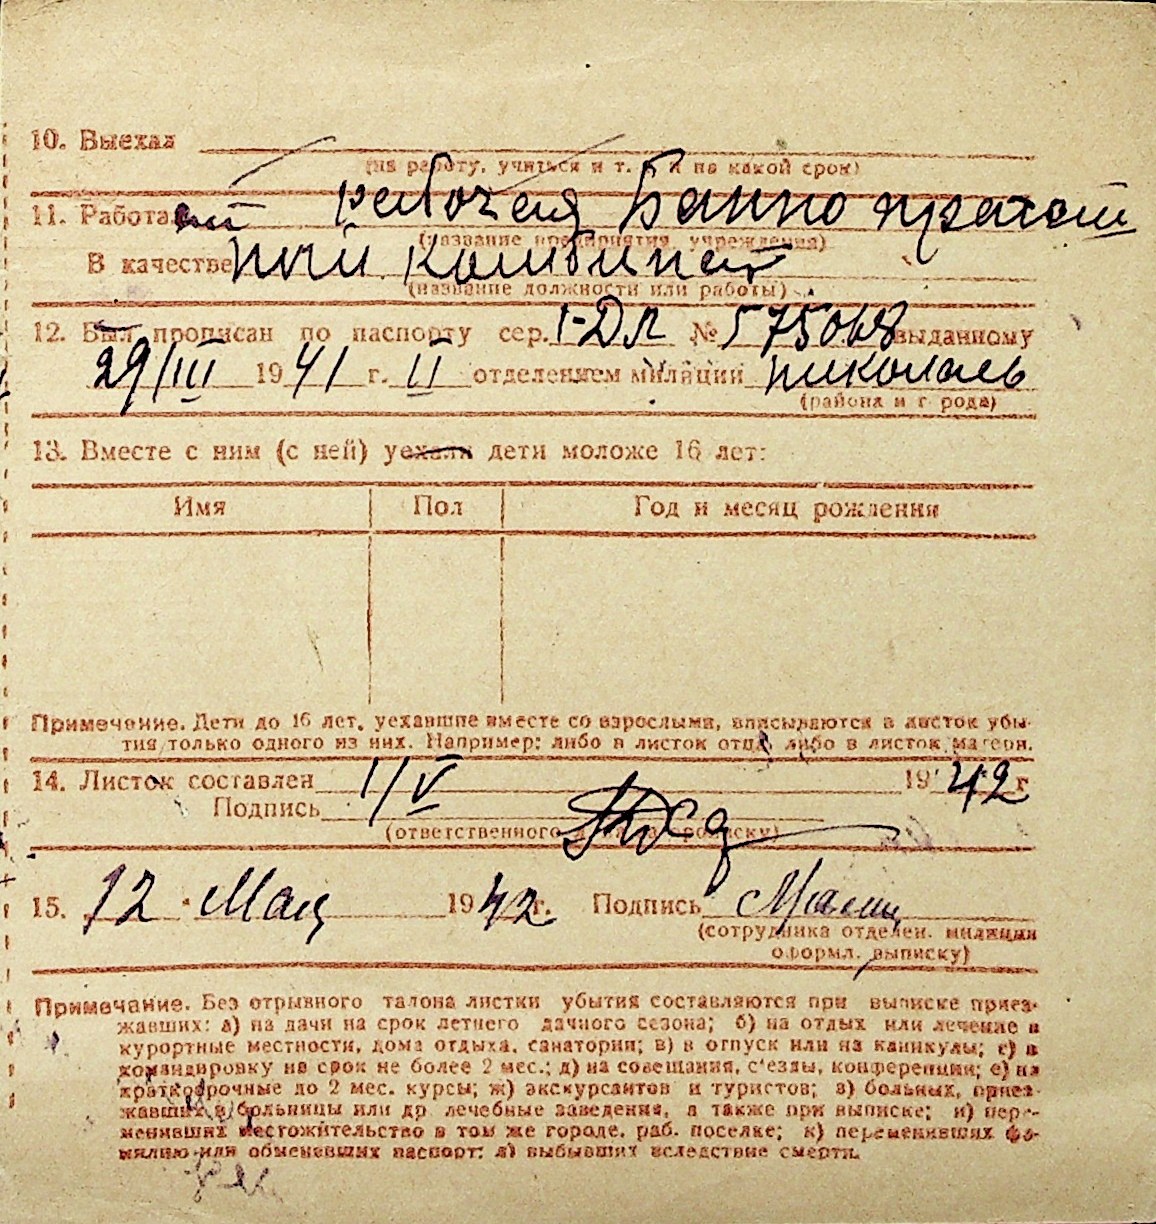 10. Выехал
(на работу, учиться и т. д. и на какой срок)
11. Работа рабочая Банно прачеш
(название предприятия, учреждения)
В качестве ной комбинат
(название должности или работы)
12. Был прописан по паспорту сер. I-ДЛ № 575068 выданному
29/III 1941 г. II отделением милиции Николаев
(района и города)
13. Вместе с ним (с ней) уехали дети моложе 16 лет:
Имя Пол Год и месяц рождения
Примечение. Дети до 16 лет, уехавшие вместе со взрослыми, вписываются в листок убы-
тия только одного из них. Например: либо в листок отца, либо в листок матери.
14. Листок составлен 1/V 1942 г
Подпись
(ответственного за прописку)
15. 12 Мая 1942 г. Подпись
(сотрудника отделен. милиции
оформл. выписку)
Примечание. Без отрывного талона листки убытия составляются при выписке приез-
жавших: а) на дачи на срок летнего дачного сезона; б) на отдых или лечение в
курортные местности, дома отдыха, санатории; в) в отпуск или на каникулы; г) в
командировку на срок не более 2 мес.; д) на совещания, с'езды, конференции; е) на
краткосрочные до 2 мес. курсы; ж) экскурсантов и туристов; з) больных, приез-
жавших в больницы или др лечебные заведения, а также при выписке; и) пере-
менивших местожительство в том же городе, раб. поселке; к) переменивших фа-
милию или обменявших паспорт; л) выбывших вследствие смерти.